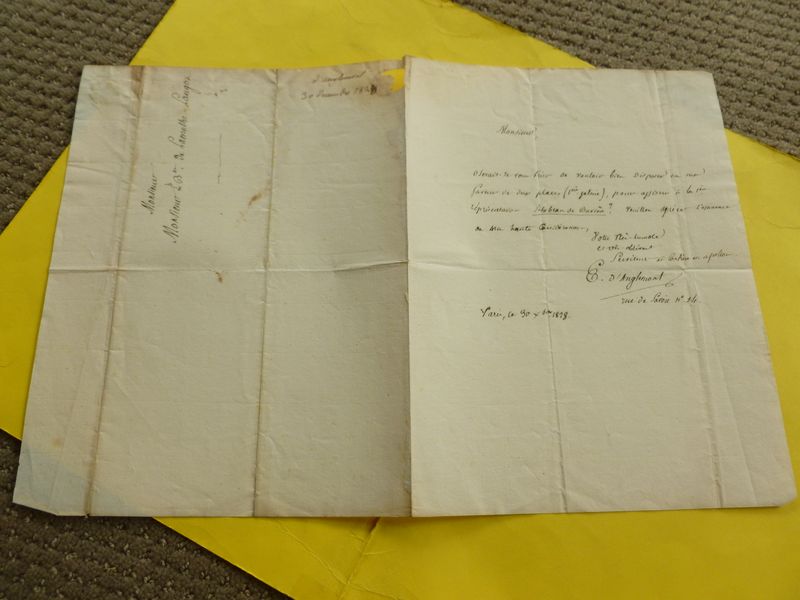 d'anglemont
30 Decembre 1828
Monsieur
Monsieur Le Bon de Lamothe-Langon
Monsieur
Oserais-je vous prier de vouloir bien disposer en ma
faveur de deux places (1ère galerie), pour assister à la 1ère
représentation de veuillez agréer l'assurance
de ma haute Considération,
Votre très-humble
et très obéissant
Serviteur et Confrère en apollon
E. D'Anglemont
rue de Savoie N° 24.
Paris, ce 30 Xbre 1828.